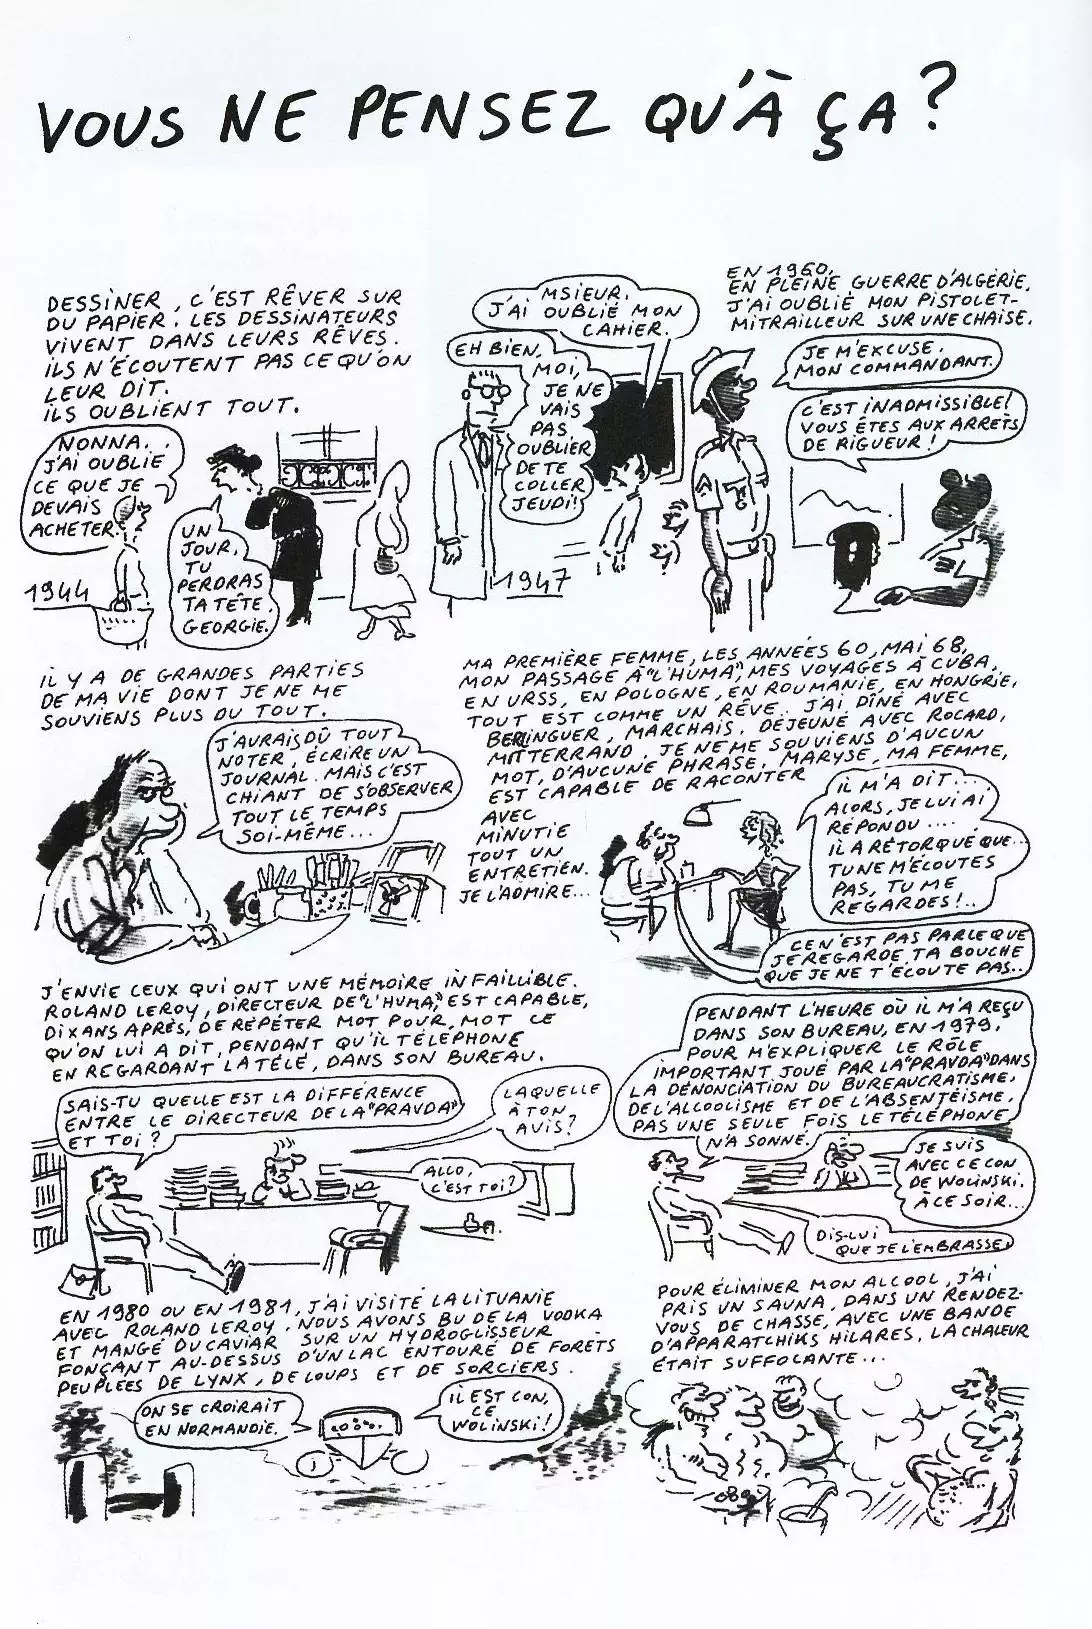 VOUS NE PENSEZ QU'À ÇA?
DESSINER, C'EST RÊVER SUR
DU PAPIER. LES DESSINATEURS
VIVENT DANS LEURS RÊVES.
ILS N'ÉCOUTENT PAS CE QU'ON
LEUR DIT.
ILS OUBLIENT TOUT.
NONNA.
J'AI OUBLIÉ
CE QUE JE
DEVAIS
ACHETER.
UN
JOUR,
TU
PERDRAS
TA TÊTE,
GEORGIE.
1944
MSIEUR,
J'AI OUBLIÉ MON
CAHIER.
EH BIEN,
MOI,
JE NE
VAIS
PAS
OUBLIER
DE TE
COLLER
JEUDI!
1947
EN 1960,
EN PLEINE GUERRE D'ALGÉRIE,
J'AI OUBLIÉ MON PISTOLET-
MITRAILLEUR SUR UNE CHAISE.
JE M'EXCUSE,
MON COMMANDANT.
C'EST INADMISSIBLE!
VOUS ÊTES AUX ARRÊTS
DE RIGUEUR!
IL Y A DE GRANDES PARTIES
DE MA VIE DONT JE NE ME
SOUVIENS PLUS DU TOUT.
J'AURAIS DÛ TOUT
NOTER, ÉCRIRE UN
JOURNAL. MAIS C'EST
CHIANT DE S'OBSERVER
TOUT LE TEMPS
SOI-MÊME...
MA PREMIÈRE FEMME, LES ANNÉES 60, MAI 68,
MON PASSAGE À "L'HUMA", MES VOYAGES À CUBA,
EN URSS, EN POLOGNE, EN ROUMANIE, EN HONGRIE,
TOUT EST COMME UN RÊVE. J'AI DÎNÉ AVEC
BERLINGUER, MARCHAIS, DÉJEUNÉ AVEC ROCARD,
MITTERRAND. JE NE ME SOUVIENS D'AUCUN
MOT, D'AUCUNE PHRASE. MARYSE, MA FEMME,
EST CAPABLE DE RACONTER
AVEC
MINUTIE
TOUT UN
ENTRETIEN.
JE L'ADMIRE...
IL M'A DIT...
ALORS, JE LUI AI
RÉPONDU....
IL A RÉTORQUÉ QUE...
TU NE M'ÉCOUTES
PAS, TU ME
REGARDES!..
CE N'EST PAS PARCE QUE
JE REGARDE TA BOUCHE
QUE JE NE T'ÉCOUTE PAS..
J'ENVIE CEUX QUI ONT UNE MÉMOIRE INFAILLIBLE.
ROLAND LEROY, DIRECTEUR DE "L'HUMA", EST CAPABLE,
DIX ANS APRÈS, DE RÉPÉTER MOT POUR MOT CE
QU'ON LUI A DIT, PENDANT QU'IL TÉLÉPHONE
EN REGARDANT LA TÉLÉ, DANS SON BUREAU.
SAIS-TU QUELLE EST LA DIFFÉRENCE
ENTRE LE DIRECTEUR DE LA "PRAVDA"
ET TOI?
LAQUELLE
À TON
AVIS?
ALLO,
C'EST TOI?
PENDANT L'HEURE OÙ IL M'A REÇU
DANS SON BUREAU, EN 1979,
POUR M'EXPLIQUER LE RÔLE
IMPORTANT JOUÉ PAR LA "PRAVDA" DANS
LA DÉNONCIATION DU BUREAUCRATISME,
DE L'ALCOOLISME ET DE L'ABSENTÉISME,
PAS UNE SEULE FOIS LE TÉLÉPHONE
N'A SONNÉ.
JE SUIS
AVEC CE CON
DE WOLINSKI.
À CE SOIR...
DIS-LUI
QUE JE L'EMBRASSE.
EN 1980 OU EN 1981, J'AI VISITÉ LA LITUANIE
AVEC ROLAND LEROY. NOUS AVONS BU DE LA VODKA
ET MANGÉ DU CAVIAR SUR UN HYDROGLISSEUR
FONÇANT AU-DESSUS D'UN LAC ENTOURÉ DE FORÊTS
PEUPLÉES DE LYNX, DE LOUPS ET DE SORCIERS.
ON SE CROIRAIT
EN NORMANDIE.
IL EST CON,
CE
WOLINSKI!
POUR ÉLIMINER MON ALCOOL, J'AI
PRIS UN SAUNA, DANS UN RENDEZ-
VOUS DE CHASSE, AVEC UNE BANDE
D'APPARATCHIKS HILARES, LA CHALEUR
ÉTAIT SUFFOCANTE...